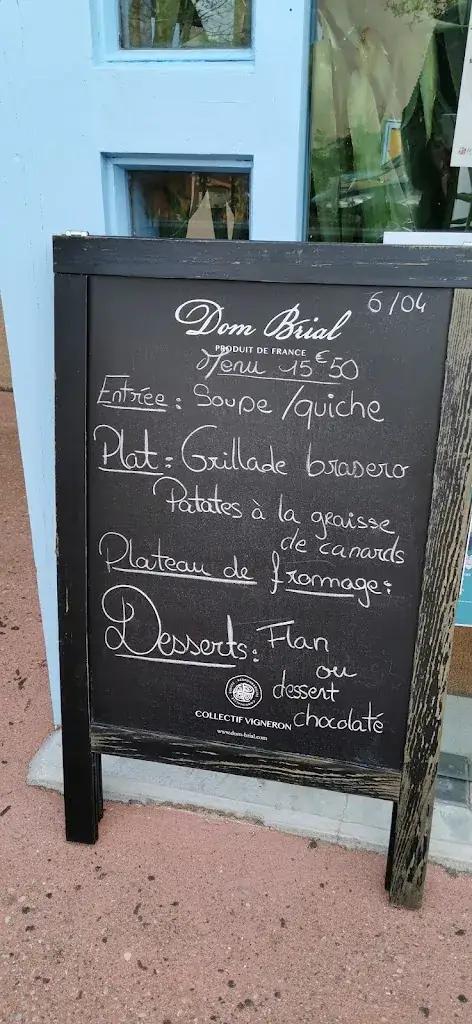 6/04
Dom Brial
PRODUIT DE FRANCE
Menu 15€50
Entrée : Soupe / quiche
Plat : Grillade brasero
Patates à la graisse
de canards
Plateau de fromage :
Desserts : Flan
ou
dessert
chocolaté
COLLECTIF VIGNERON
www.dom-brial.com